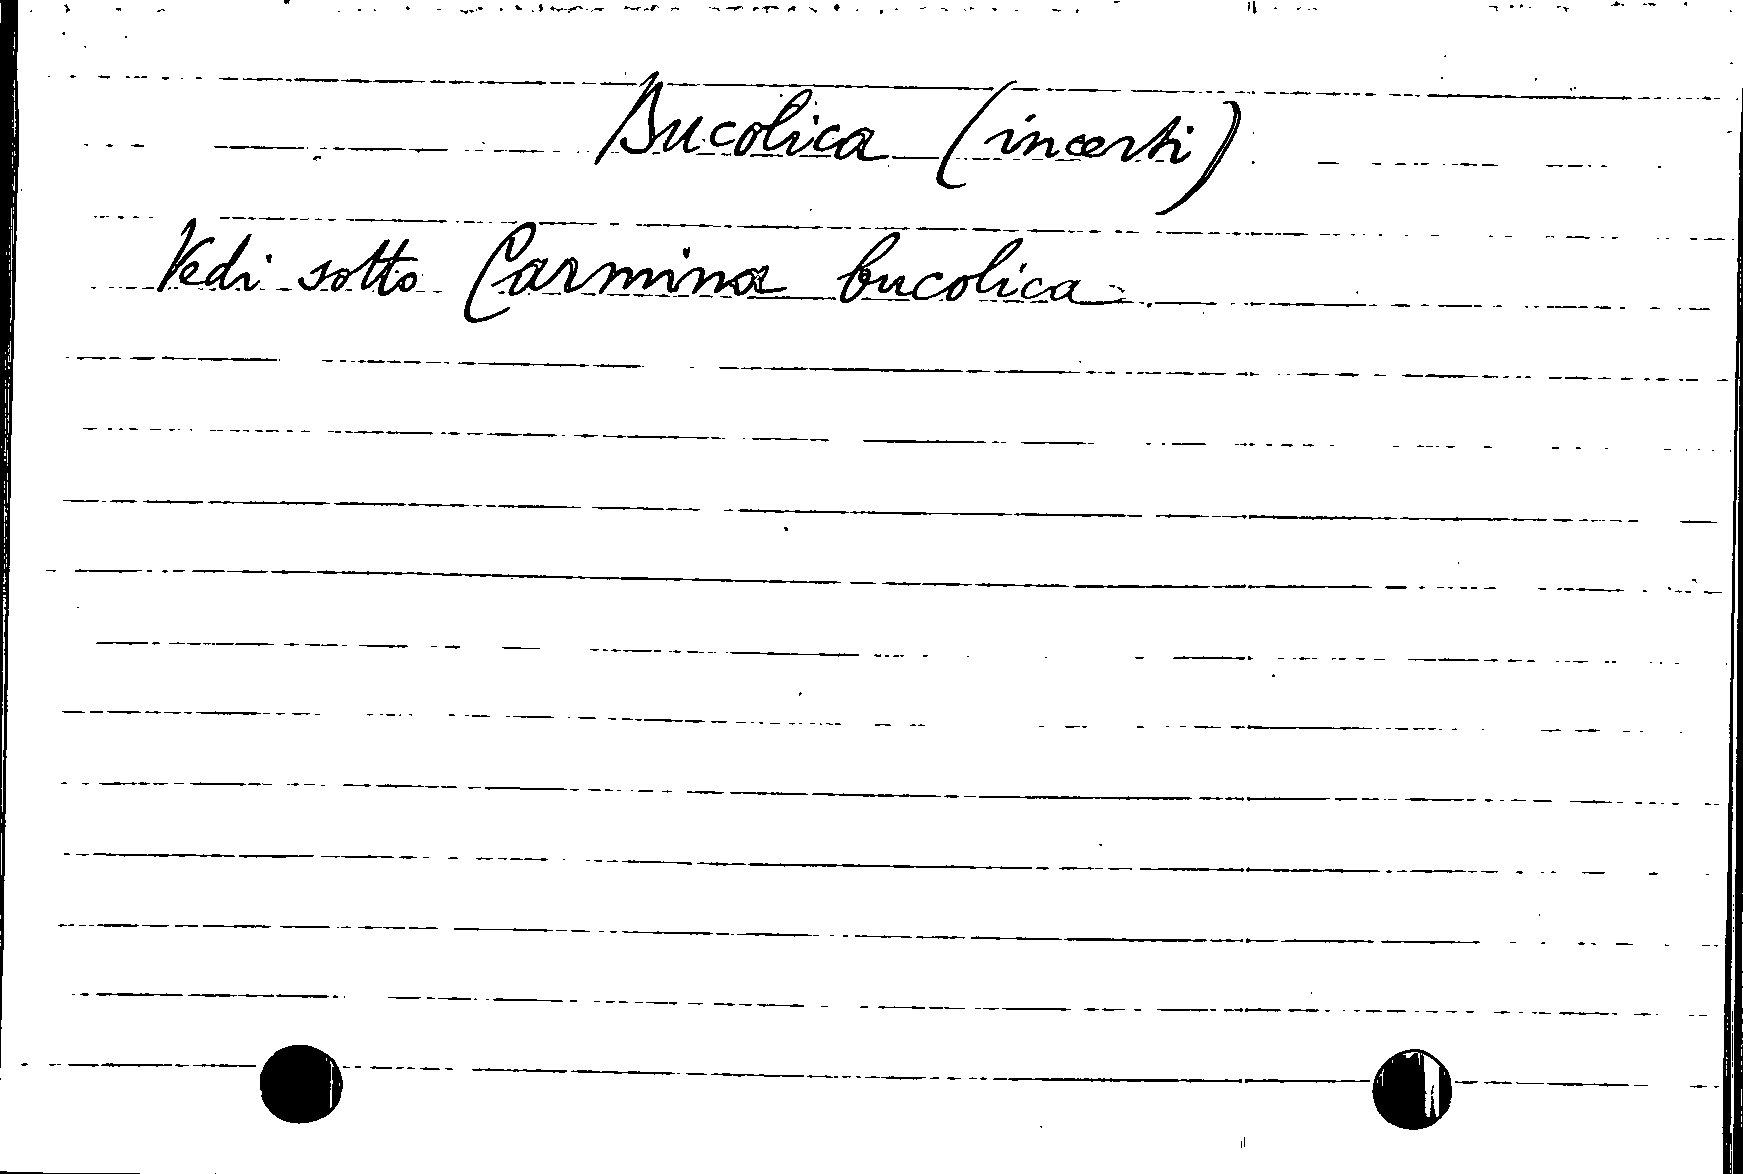 Bucolica (incerti)
Vedi sotto Carmina bucolica.